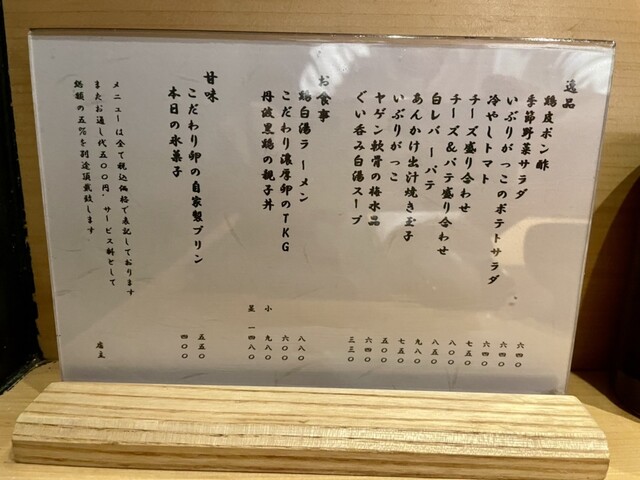 逸品
鶏皮ポン酢 六四〇
季節野菜サラダ 六四〇
いぶりがっこのポテトサラダ 六四〇
冷やしトマト 七五〇
チーズ盛り合わせ 八〇〇
チーズ&パテ盛り合わせ 八五〇
白レバーパテ 九八〇
あんかけ出汁焼き玉子 七五〇
いぶりがっこ 五〇〇
ヤゲン軟骨の梅水晶 六四〇
ぐい呑み白湯スープ 三三〇
お食事
鶏白湯ラーメン 八八〇
こだわり濃厚卵のTKG 六〇〇
丹波黒鶏の親子丼 小 九八〇
一四八〇
甘味
こだわり卵の自家製プリン 五五〇
本日の氷菓子 四〇〇
メニューは全て税込価格で表記しております
またお通し代五〇〇円、サービス料として
総額の五%を別途頂戴致します。
店主